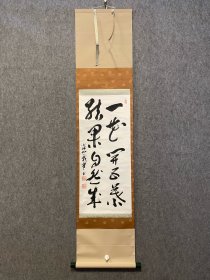 一花開五葉
結果自然成